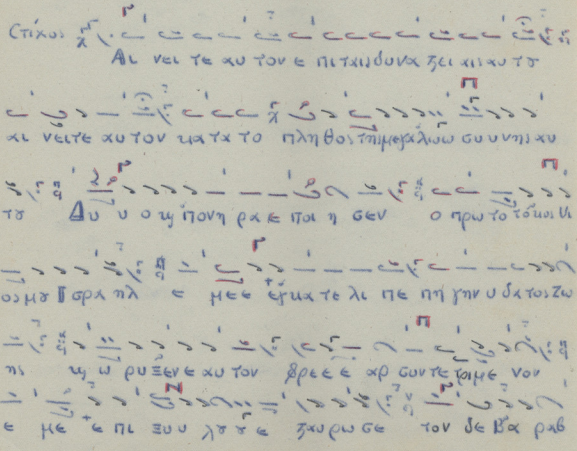 Στίχος Αι νει τε αυ τον ε πι ταις δυνα στει αις αυ του
αι νειτε αυ τον κατα το πληθος της μεγαλωσυ νης αυ
του Δυ υ ο κ πονη ρα ε ποι η σεν ο πρω το τοκος υι
ος μου Ισρα ηλ ε με ε εγκα τε λι πε πη γην υ δατος ζω
ης κ ω ρυξεν ε αυ τον φρε ε ε αρ συν τε τριμ με νον
ε με ε πι ξυ υ λου ου ε σταυρω σε τον δε Βα ραβ